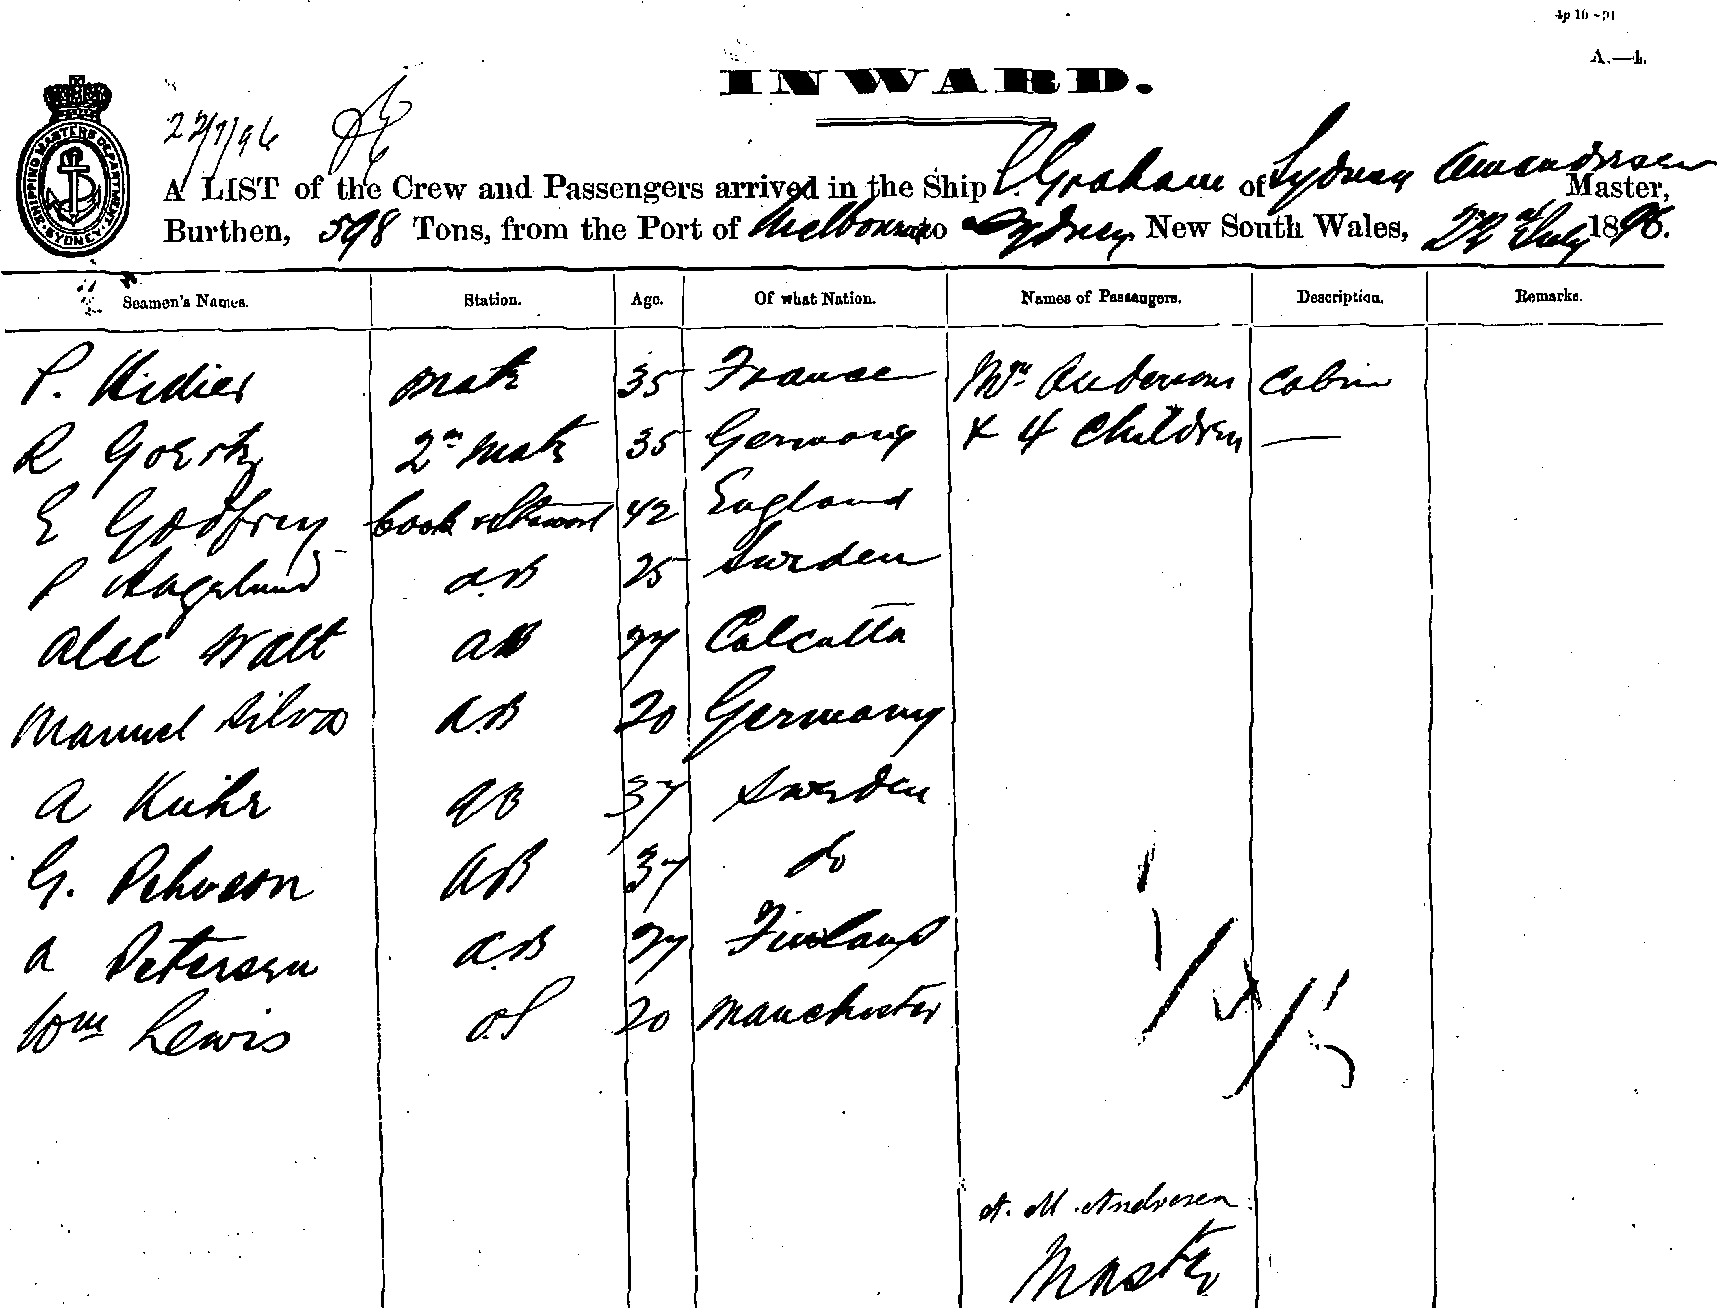 4p 10-91
A.—4.
INWARD.
SHIPPING MASTERS DEPARTMENT SYDNEY
22/7/96
A LIST of the Crew and Passengers arrived in the Ship C. Graham of Sydney Master,
Burthen, 598 Tons, from the Port of Melbourne to Sydney New South Wales, 22nd July 1896.
Seamen's Names. Station. Age. Of what Nation. Names of Passengers. Description. Remarks.
P. Hidier Mate 35 France Mrs Anderson Cabin
R Goertz 2nd Mate 35 Germany & 4 Children —
E Godfrey Cook & Steward 42 England
P Hagelund A.B 25 Sweden
Alec Watt AB 27 Calcutta
Manuel Silva A.B 20 Germany
A Kuhr AB 37 Sweden
G. AB 37 do
A Petersen A.B 27 Finland
Wm Lewis O.S 20 Manchester
A. M. Andresen
Master